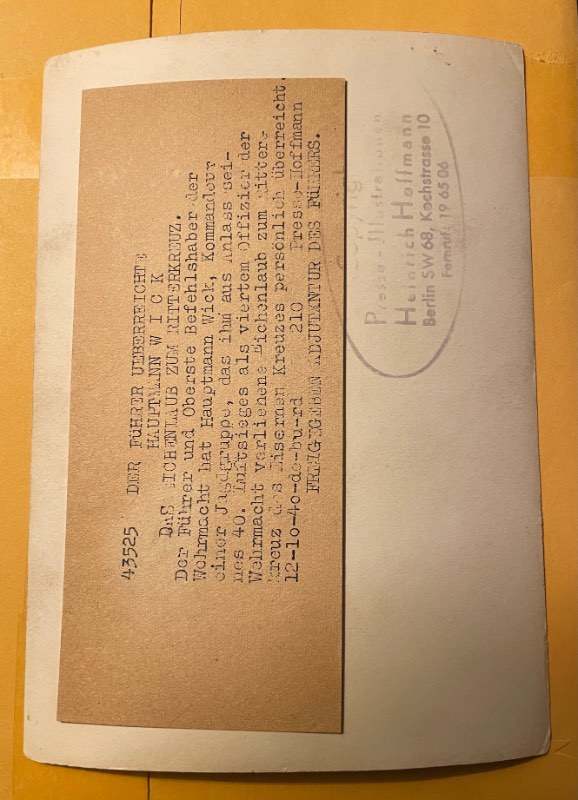 43525 DER FÜHRER UEBERREICHTE
HAUPTMANN W I C K
DAS EICHENLAUB ZUM RITTERKREUZ.
Der Führer und Oberste Befehlshaber der
Wehrmacht hat Hauptmann Wick, Kommandeur
einer Jagdgruppe, das ihm aus Anlass sei-
nes 40. Luftsieges als viertem Offizier der
Wehrmacht verliehene Eichenlaub zum Ritter-
kreuz des Eisernen Kreuzes persönlich überreicht.
12-10-40-de-bu-rd 210 Presse-Hoffmann
FREIGEGEBEN ADJUTANTUR DES FÜHRERS.
Presse-Illustrationen
Heinrich Hoffmann
Berlin SW 68, Kochstrasse 10
Fernruf: 19 65 06